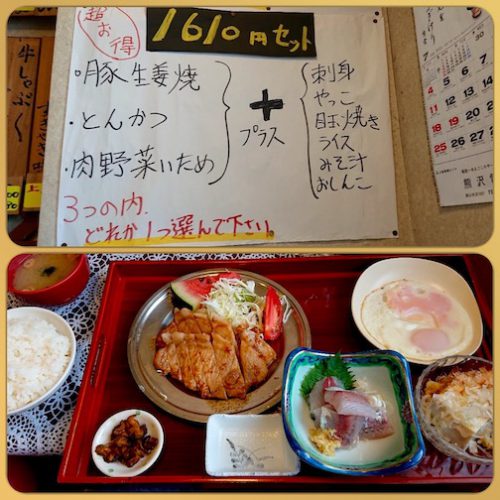 超お得
1610円セット
・豚生姜焼
・とんかつ
・肉野菜いため
＋
プラス
刺身
やっこ
目玉焼き
ライス
みそ汁
おしんこ
3つの内、
どれか1つ選んで下さい。
牛しゃぶく
上
4 5
11 12 13
18 19 20
25 26 27
熊沢